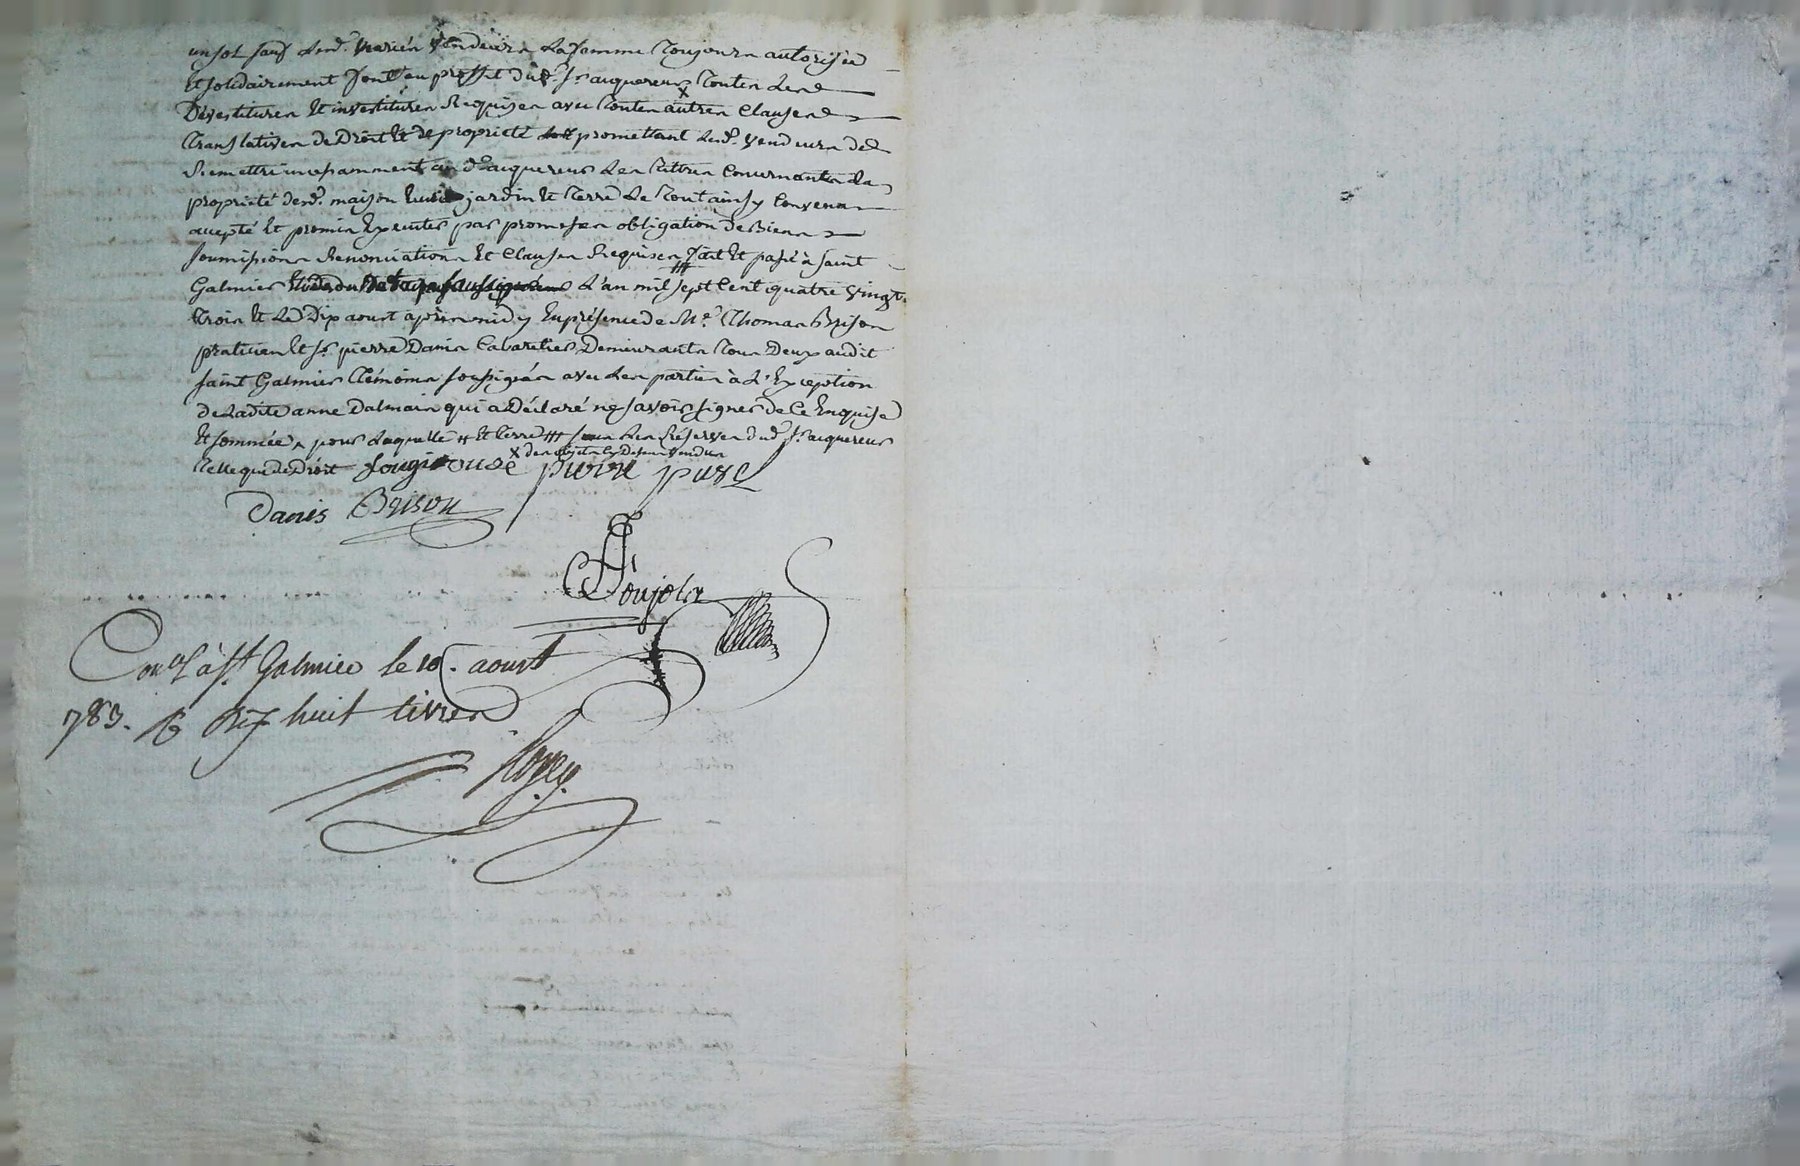 un sol sauf lesd. mariés vendeurs la famme toujours autorisée
Et solidairement font au proffit dud. sr. acquereur x touttes les
Devestitures Et investitures Requises avec touttes autres Clauses
translatives de Droit Et de proprieté promettant lesd. vendeurs de
Remettre incessamment aud. acquereur les titres Concernants la
proprieté desd. maison jardin Et terre Le tout ainsy Convenu
accepté Et promis Executer par promesses obligation de Biens
soumissions Renonciations Et Clauses Requises fait Et passé à saint
Galmier l'an mil sept Cent quatre vingt
trois Et Le Dix aoust après midy En présence de Me. Thomas Brison
praticien Et sr. pierre Danis Cabaretier Demeurants tous Deux audit
saint Galmier témoins soussignés avec les parties à L'Exception
de Ladite anne Dalmais qui a Déclaré ne savoir signer de Ce Enquise
Et sommée, pour Laquelle # Et terre ### sous Les Réserves dud. sr. acquereur
x des objets Cy Dessus vendus
telle que de Droit fougerouse pierre
Danis Brison
Poujols
Con.lé à st. Galmier le 10. aoust
783. R dix huit livres